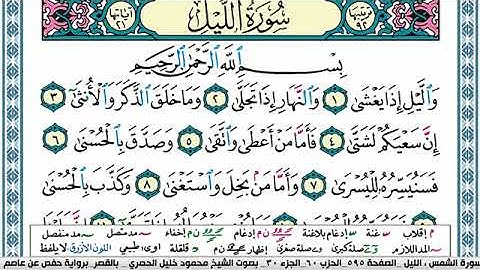 سُورَةُ اللَّيْلِ
بِسْمِ ٱللَّهِ ٱلرَّحْمَٰنِ ٱلرَّحِيمِ
وَٱلَّيْلِ إِذَا يَغْشَىٰ ١ وَٱلنَّهَارِ إِذَا تَجَلَّىٰ ٢ وَمَا خَلَقَ ٱلذَّكَرَ وَٱلْأُنثَىٰٓ ٣
إِنَّ سَعْيَكُمْ لَشَتَّىٰ ٤ فَأَمَّا مَنْ أَعْطَىٰ وَٱتَّقَىٰ ٥ وَصَدَّقَ بِٱلْحُسْنَىٰ ٦
فَسَنُيَسِّرُهُۥ لِلْيُسْرَىٰ ٧ وَأَمَّا مَنۢ بَخِلَ وَٱسْتَغْنَىٰ ٨ وَكَذَّبَ بِٱلْحُسْنَىٰ
إقلاب غنة إدغام بلاغنة إدغام إخفاء مد متصل مد منفصل
المد اللازم صلة كبرى صلة صغرى إظهار قلقلة اوى: طبيعي اللون الأزرق: لا يلفظ
سورة الشمس ، الليل_ الصفحة ٥٩٥_ الحزب ٦٠_ الجزء ٣٠_ بصوت الشيخ محمود خليل الحصري _ بالقصر_ برواية حفص عن عاصم